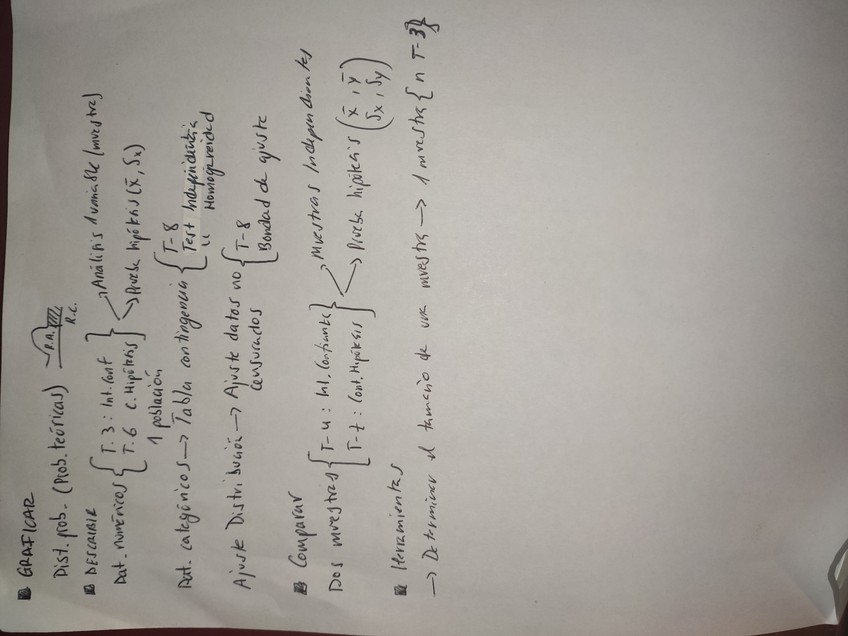 GRAFICAR
Dist. prob. (Prob. teóricas) R.A. R.C.
DESCRIBIR
Dat. numéricos { T.3 : Int. Conf } → Análisis 1 variable (muestra)
T.6 C. Hipótesis } → Prueba hipótesis (x̄, Sx)
1 población
Dat. categóricos → Tabla contingencia { T-8
Test Independencia
" Homogeneidad
Ajuste Distribución → Ajuste datos no censurados { T-8
Bondad de ajuste
Comparar
Dos muestras { T-4 : Int. Confianza } → Muestras Independientes
T-7 : Cont. Hipótesis } → Prueba hipótesis (x̄, ȳ
Sx, Sy)
Herramientas
→ Determinar el tamaño de una muestra → 1 muestra { n T-3